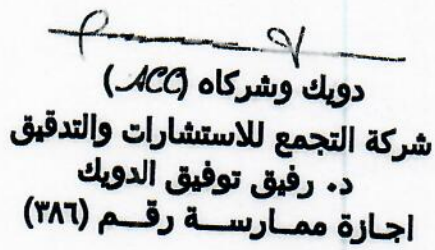 دويك وشركاه (ACC)
شركة التجمع للاستشارات والتدقيق
د. رفيق توفيق الدويك
اجازة ممـارســة رقــم (٣٨٦)